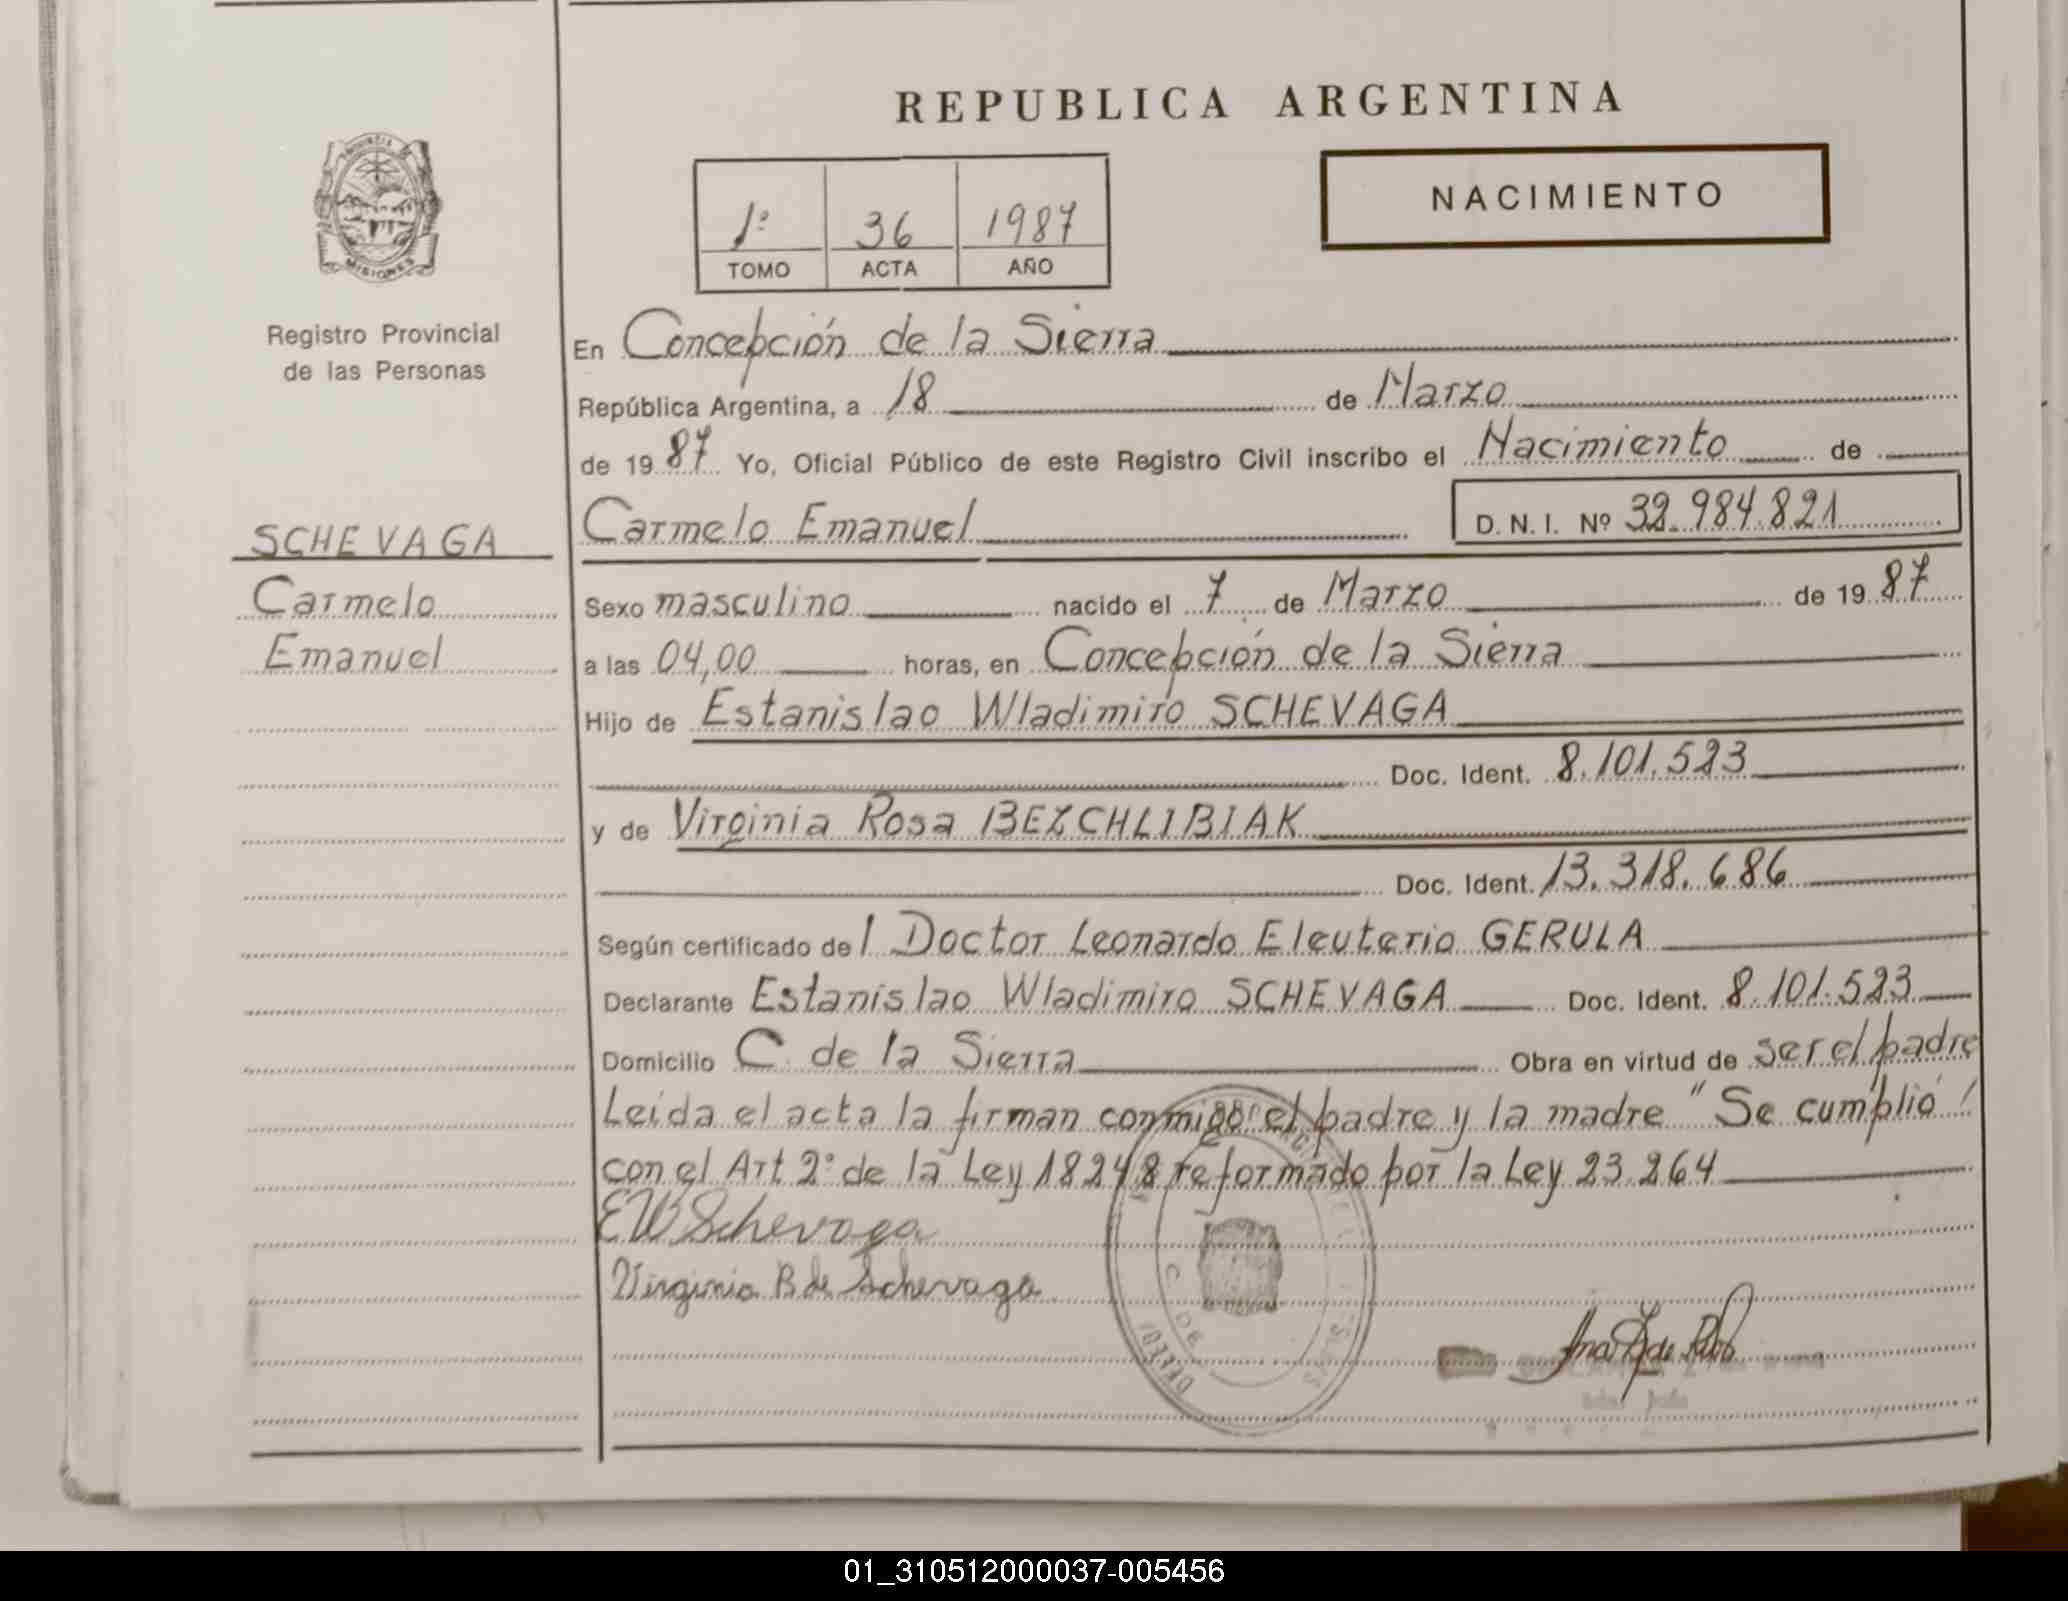 REPUBLICA ARGENTINA
NACIMIENTO
1º 36 1987
TOMO ACTA AÑO
MISIONES
Registro Provincial
de las Personas
SCHEVAGA
Carmelo
Emanuel
En Concepción de la Sierra
República Argentina, a 18 de Marzo
de 1987 Yo, Oficial Público de este Registro Civil inscribo el Nacimiento de
Carmelo Emanuel D.N.I. Nº 32.984.821
Sexo masculino nacido el 7 de Marzo de 1987
a las 04,00 horas, en Concepción de la Sierra
Hijo de Estanislao Wladimiro SCHEVAGA
Doc. Ident. 8.101.523
y de Virginia Rosa BEZCHLIBIAK
Doc. Ident. 13.318.686
Según certificado del Doctor Leonardo Eleuterio GERULA
Declarante Estanislao Wladimiro SCHEVAGA Doc. Ident. 8.101.523
Domicilio C. de la Sierra Obra en virtud de ser el padre
Leida el acta la firman conmigo el padre y la madre "Se cumplió
con el Art 2º de la Ley 18248 reformado por la Ley 23.264
EWSchevaga
Virginia B de Schevaga
01_310512000037-005456